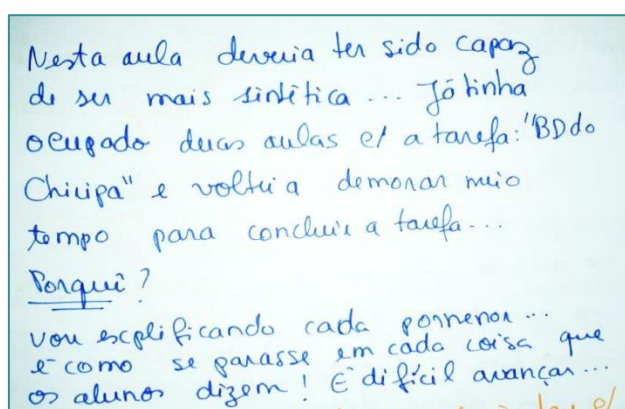 Nesta aula deveria ter sido capaz
de ser mais sintética... Já tinha
ocupado duas aulas c/ a tarefa: "BD do
Chicipa" e voltei a demorar meio
tempo para concluir a tarefa...
Porquê?
vou explificando cada pormenor...
é como se parasse em cada coisa que
os alunos dizem! É difícil avançar...